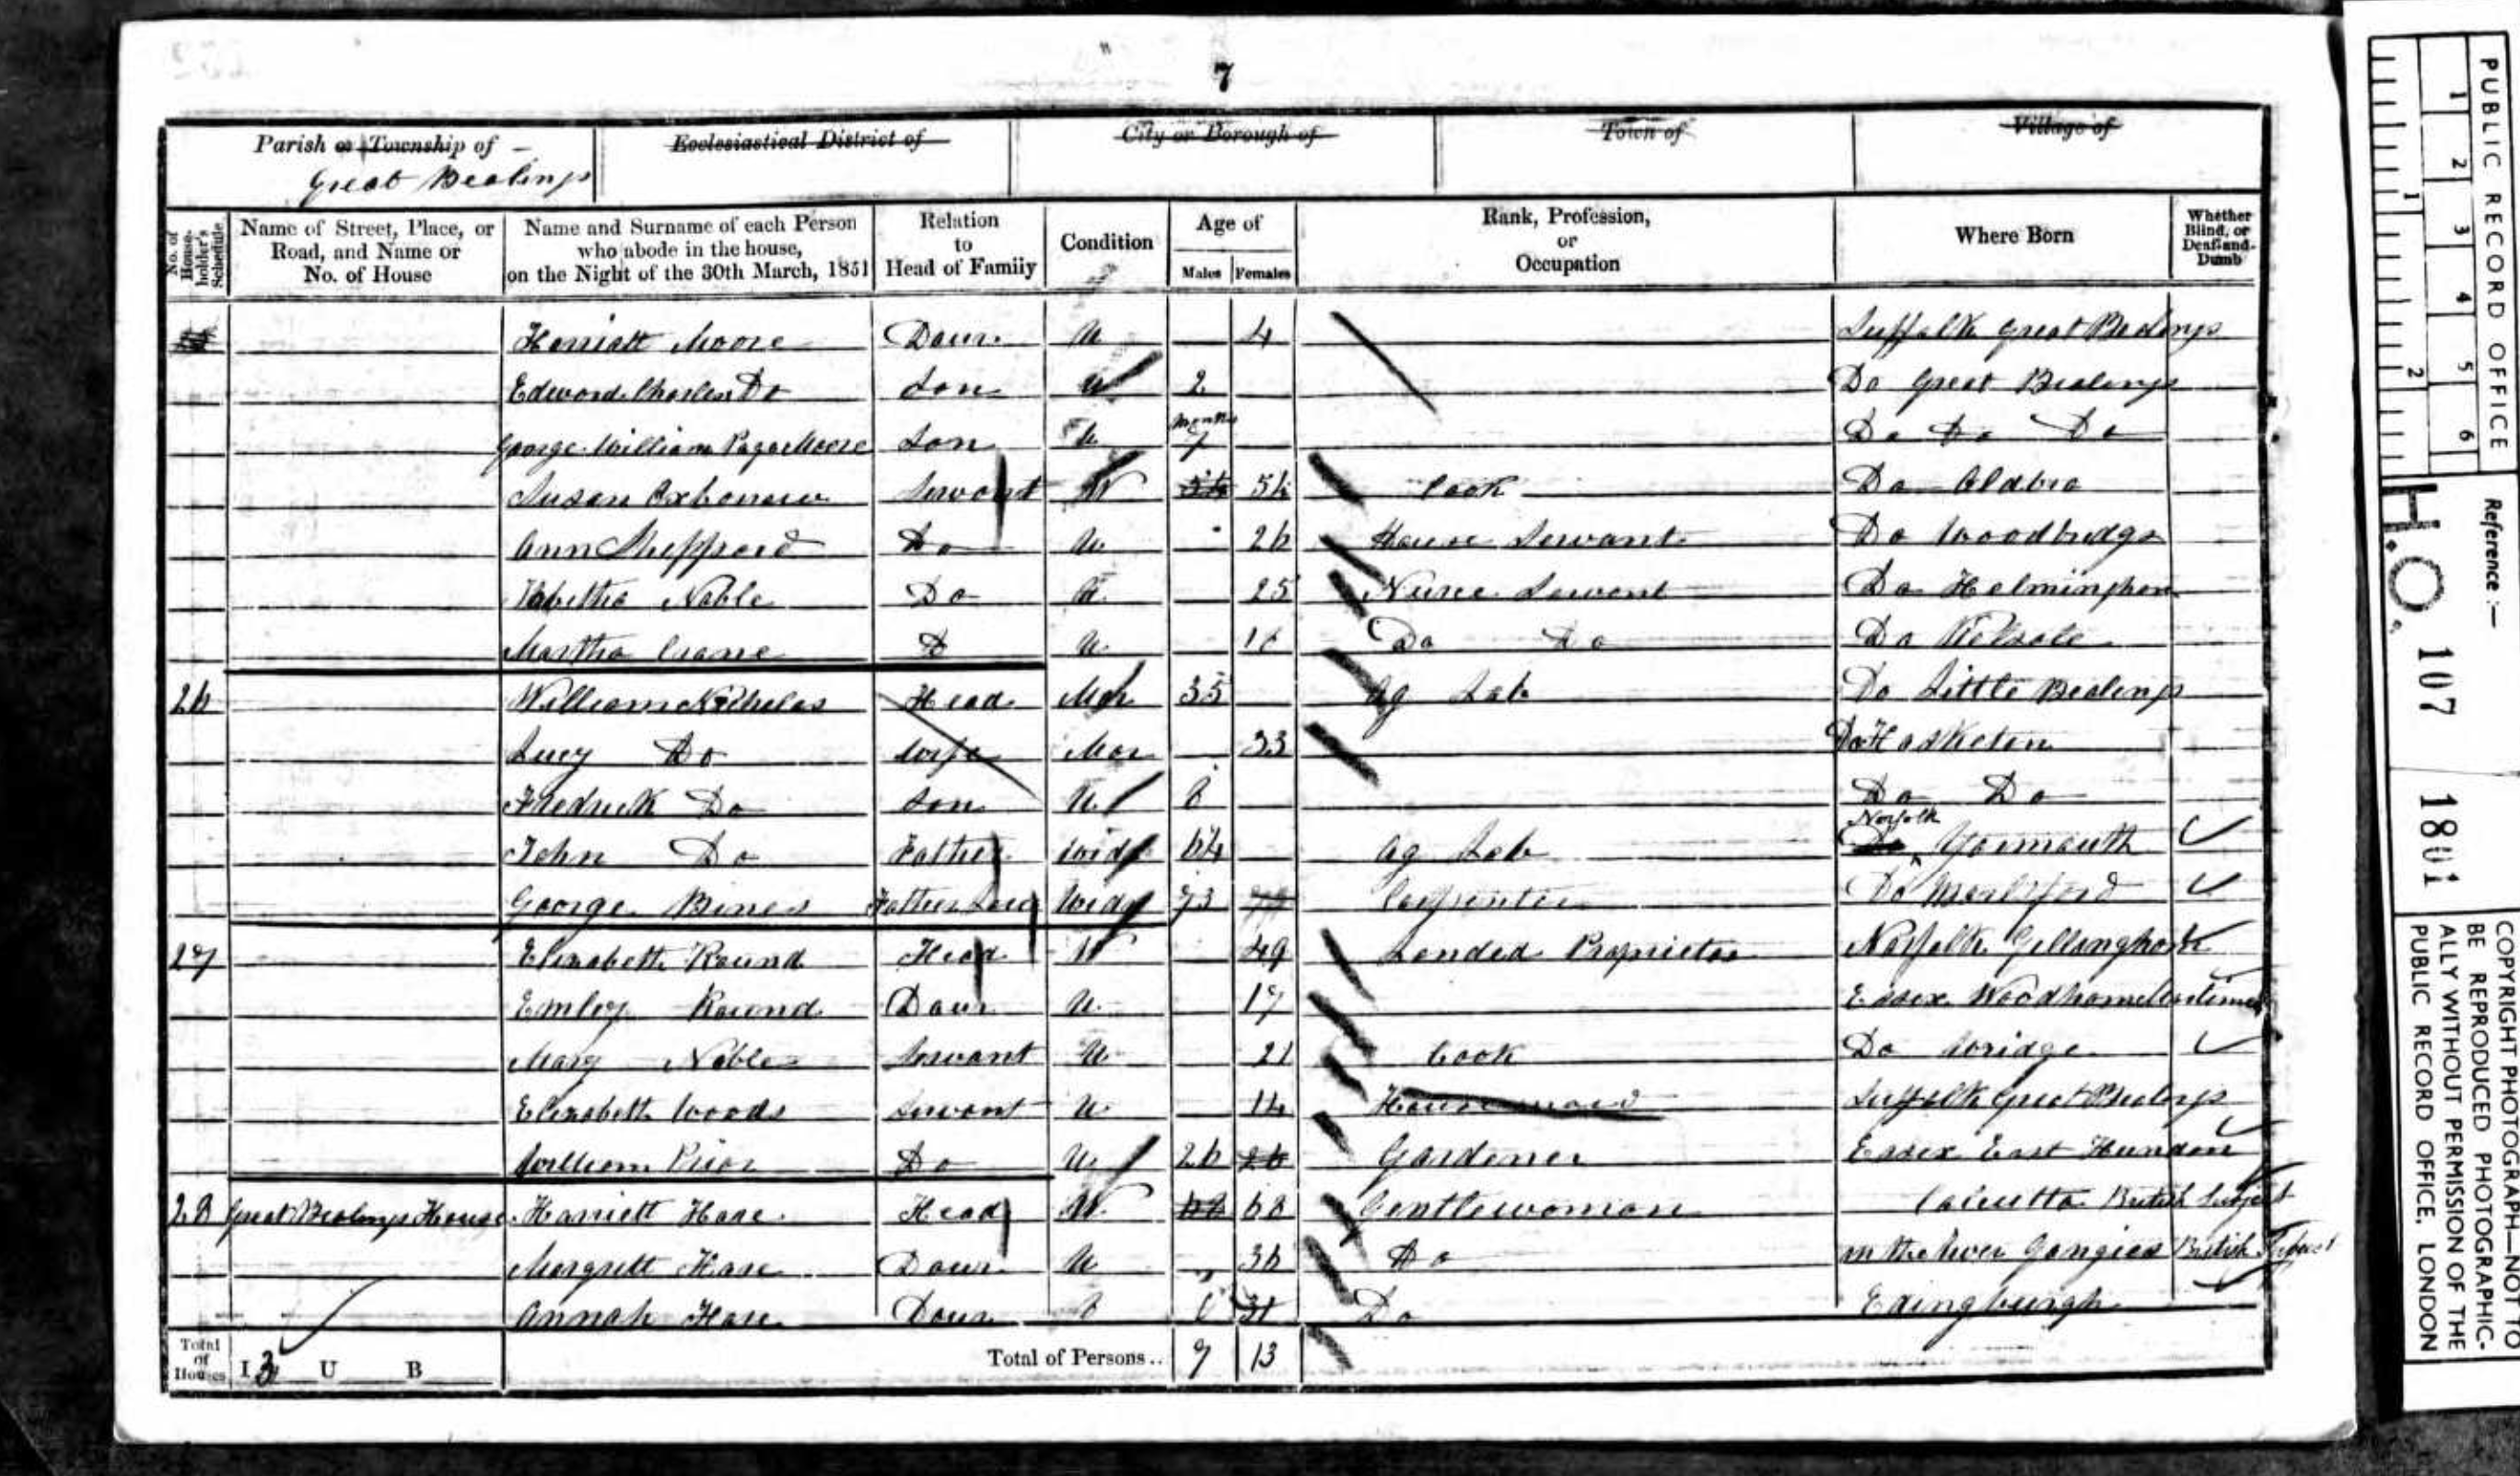 7
Parish or Township of
Great Bealings
Ecclesiastical District of
City or Borough of
Town of
Village of
No. of House-holder's Schedule
Name of Street, Place, or Road, and Name or No. of House
Name and Surname of each Person who abode in the house, on the Night of the 30th March, 1851
Relation to Head of Family
Condition
Age of
Males Females
Rank, Profession, or Occupation
Where Born
Whether Blind, or Deaf-and-Dumb
Harriett Moore Daur. U 4 Suffolk Great Bealings
Edward Charles Do Son U 2 Do Great Bealings
George William Page Moore Son U Months 7 Do Do Do
Susan Servant W 54 Cook Do Aldbro
Ann Sheppard Do U 26 House Servant Do Woodbridge
Tabitha Noble Do U 25 Nurse Servant Do Helmingham
Martha Crane D U Do Do Do Kelsale
26 William Nicholas Head Mar 35 Ag Lab Do Little Bealings
Lucy Do Wife Mar 33 Do Hasketon
Fredrick Do Son U 8 Do Do
John Do Father Widr 64 Ag Lab Norfolk Yarmouth
George Bines Father Law Widr 73 Carpenter Do
27 Elizabeth Round Head W 49 Landed Proprietor Norfolk Gillingham
Emley Round Daur U 17 Essex Woodham
Mary Noble Servant U 21 Cook Do
Elizabeth Woods Servant U 14 House maid Suffolk Great Bealings
William Prior Do U 26 26 Gardener Essex East
28 Great Bealings House Harriett Hare Head W 68 68 Gentlewoman Calcutta British Subject
Margrett Hare Daur U 36 Do in the River Gangies British Subject
Annah Hare Daur 31 Do Edingburgh
Total of Houses I 3 U B
Total of Persons.. 7 13
PUBLIC RECORD OFFICE
1 2 3 4 5 6
1 2
Reference :—
H.O. 107 1801
COPYRIGHT PHOTOGRAPH—NOT TO
BE REPRODUCED PHOTOGRAPHIC-
ALLY WITHOUT PERMISSION OF THE
PUBLIC RECORD OFFICE, LONDON